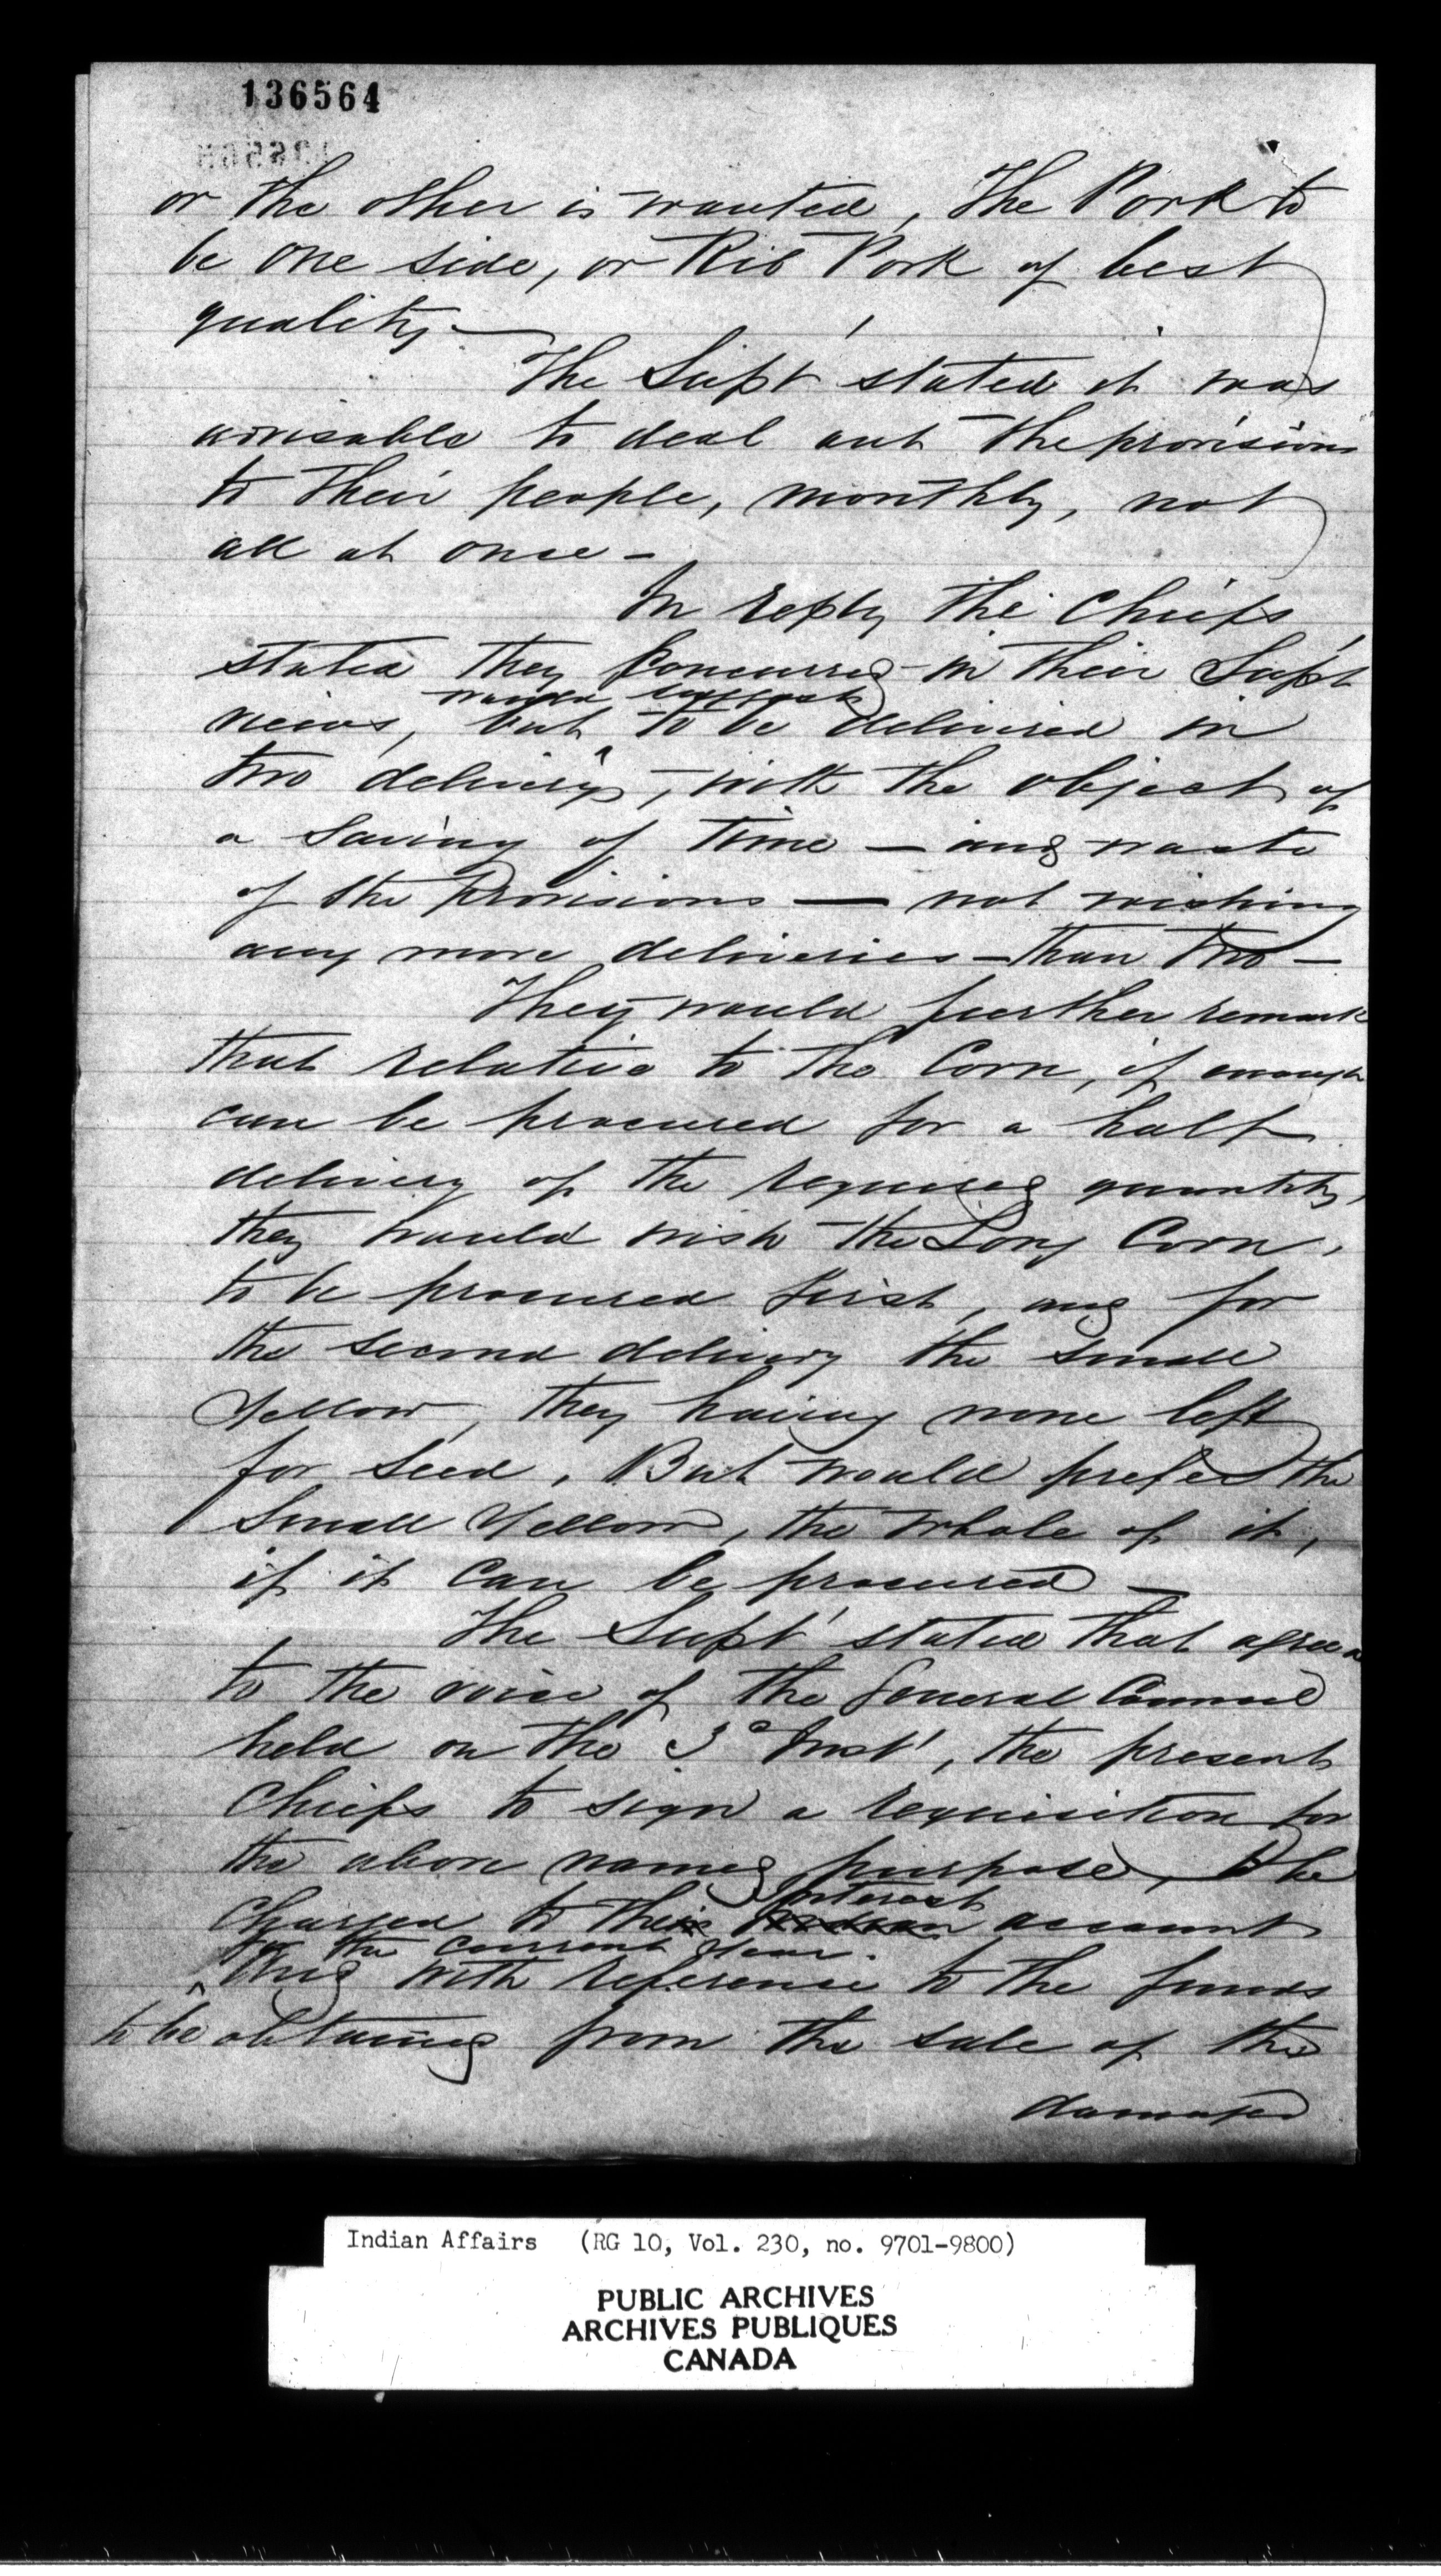 136564
or the other is wanted, The Pork to
be one side, or Rib Pork of best
quality. —
The Supt stated it was
advisable to deal out the provisions
to their people, monthly, not
all at once —
In reply the Chiefs
stated they Concurred in their Supt
would suggest
views, but to be delivered in
two deliverys, with the object of
a Saving of time — and waste
of the Provisions — not wishing
any more deliveries — than two —
They would further remark
that relative to the Corn, if enough
can be procured for a half
delivery of the required quantity,
they would wish the Long Corn,
to be procured first, and for
the second delivery the small
Yellow, they having none left
for Seed, But would prefer the
Small Yellow, the whole of it,
if it Can be procured —
The Supt stated that agreed
to the voice of the General Council
held on the 3d Inst, the present
Chiefs to sign a requisition for
the above named purpose, to be
Interest
Charged to their account
for the current Year.
And with reference to the funds
to be obtained from the sale of the
damaged
Indian Affairs (RG 10, Vol. 230, no. 9701-9800)
PUBLIC ARCHIVES
ARCHIVES PUBLIQUES
CANADA